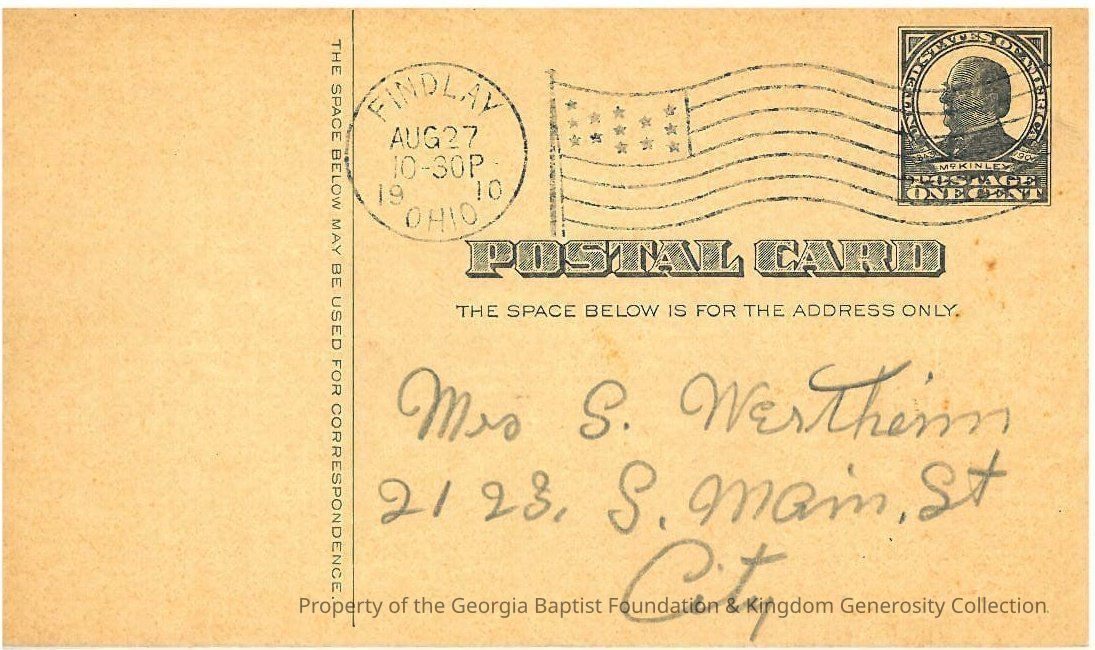 THE SPACE BELOW MAY BE USED FOR CORRESPONDENCE.
FINDLAY
AUG 27
10-30P
19 10
OHIO
UNITED STATES OF AMERICA
McKINLEY
POSTAGE
ONE CENT
POSTAL CARD
THE SPACE BELOW IS FOR THE ADDRESS ONLY.
Mrs S. Wertheim
2123, S. Main, St
City
Property of the Georgia Baptist Foundation & Kingdom Generosity Collection.